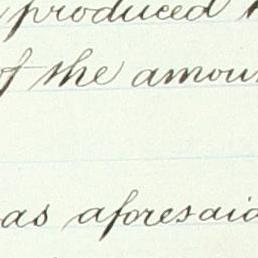 produced
of the amoun
as aforesaid